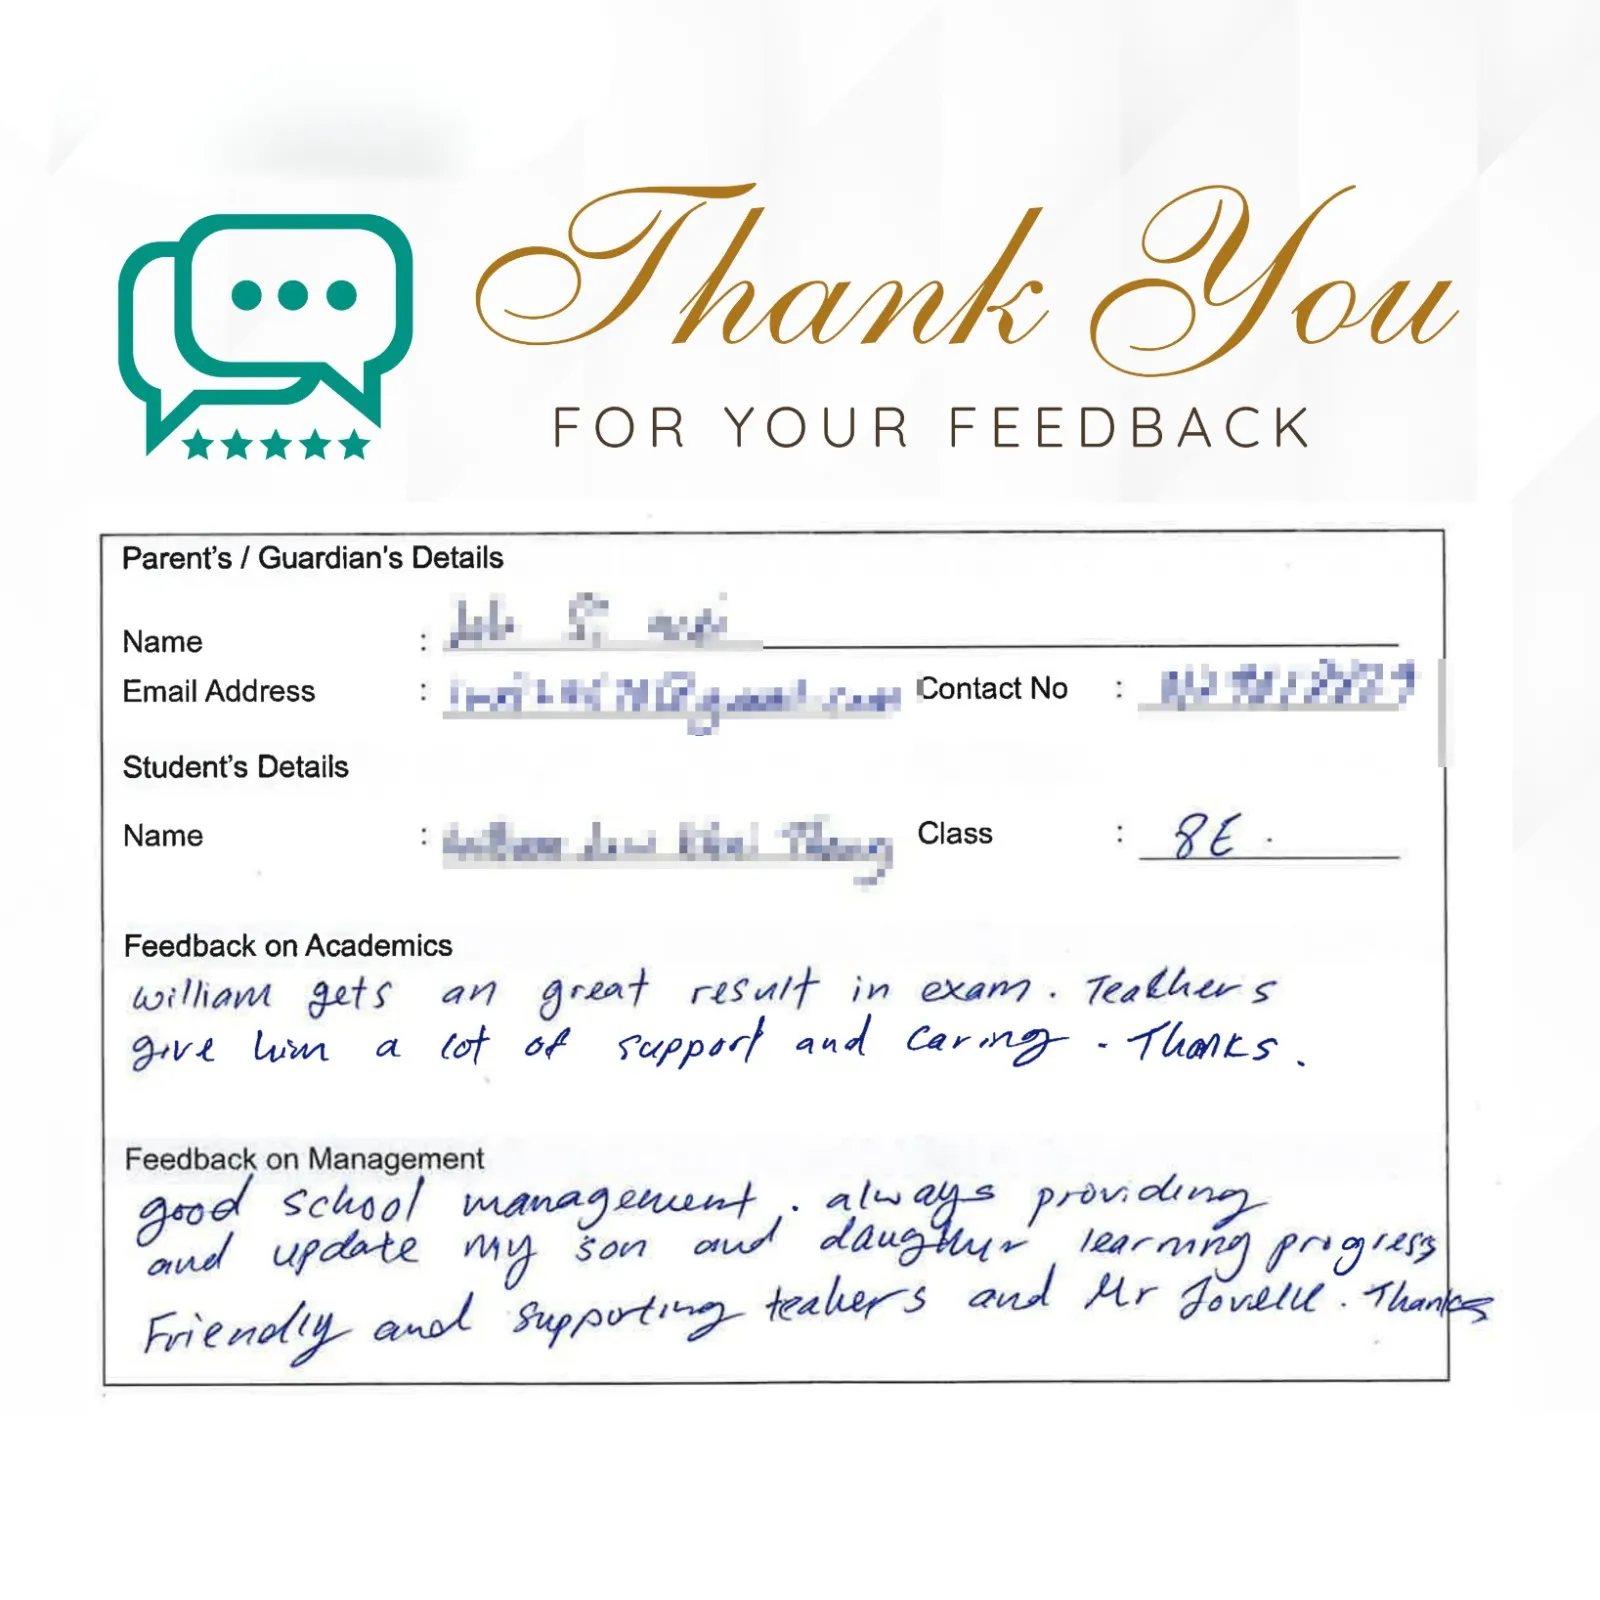 Thank You
FOR YOUR FEEDBACK
Parent's / Guardian's Details
Name :
Email Address : Contact No :
Student's Details
Name : Class : 8E.
Feedback on Academics
william gets an great result in exam. Teakhers
give him a lot of support and caring. Thanks.
Feedback on Management
good school management. always providing
and update my son and daughter learning progress
Friendly and supporting teakers and Mr Jovelle. Thanks